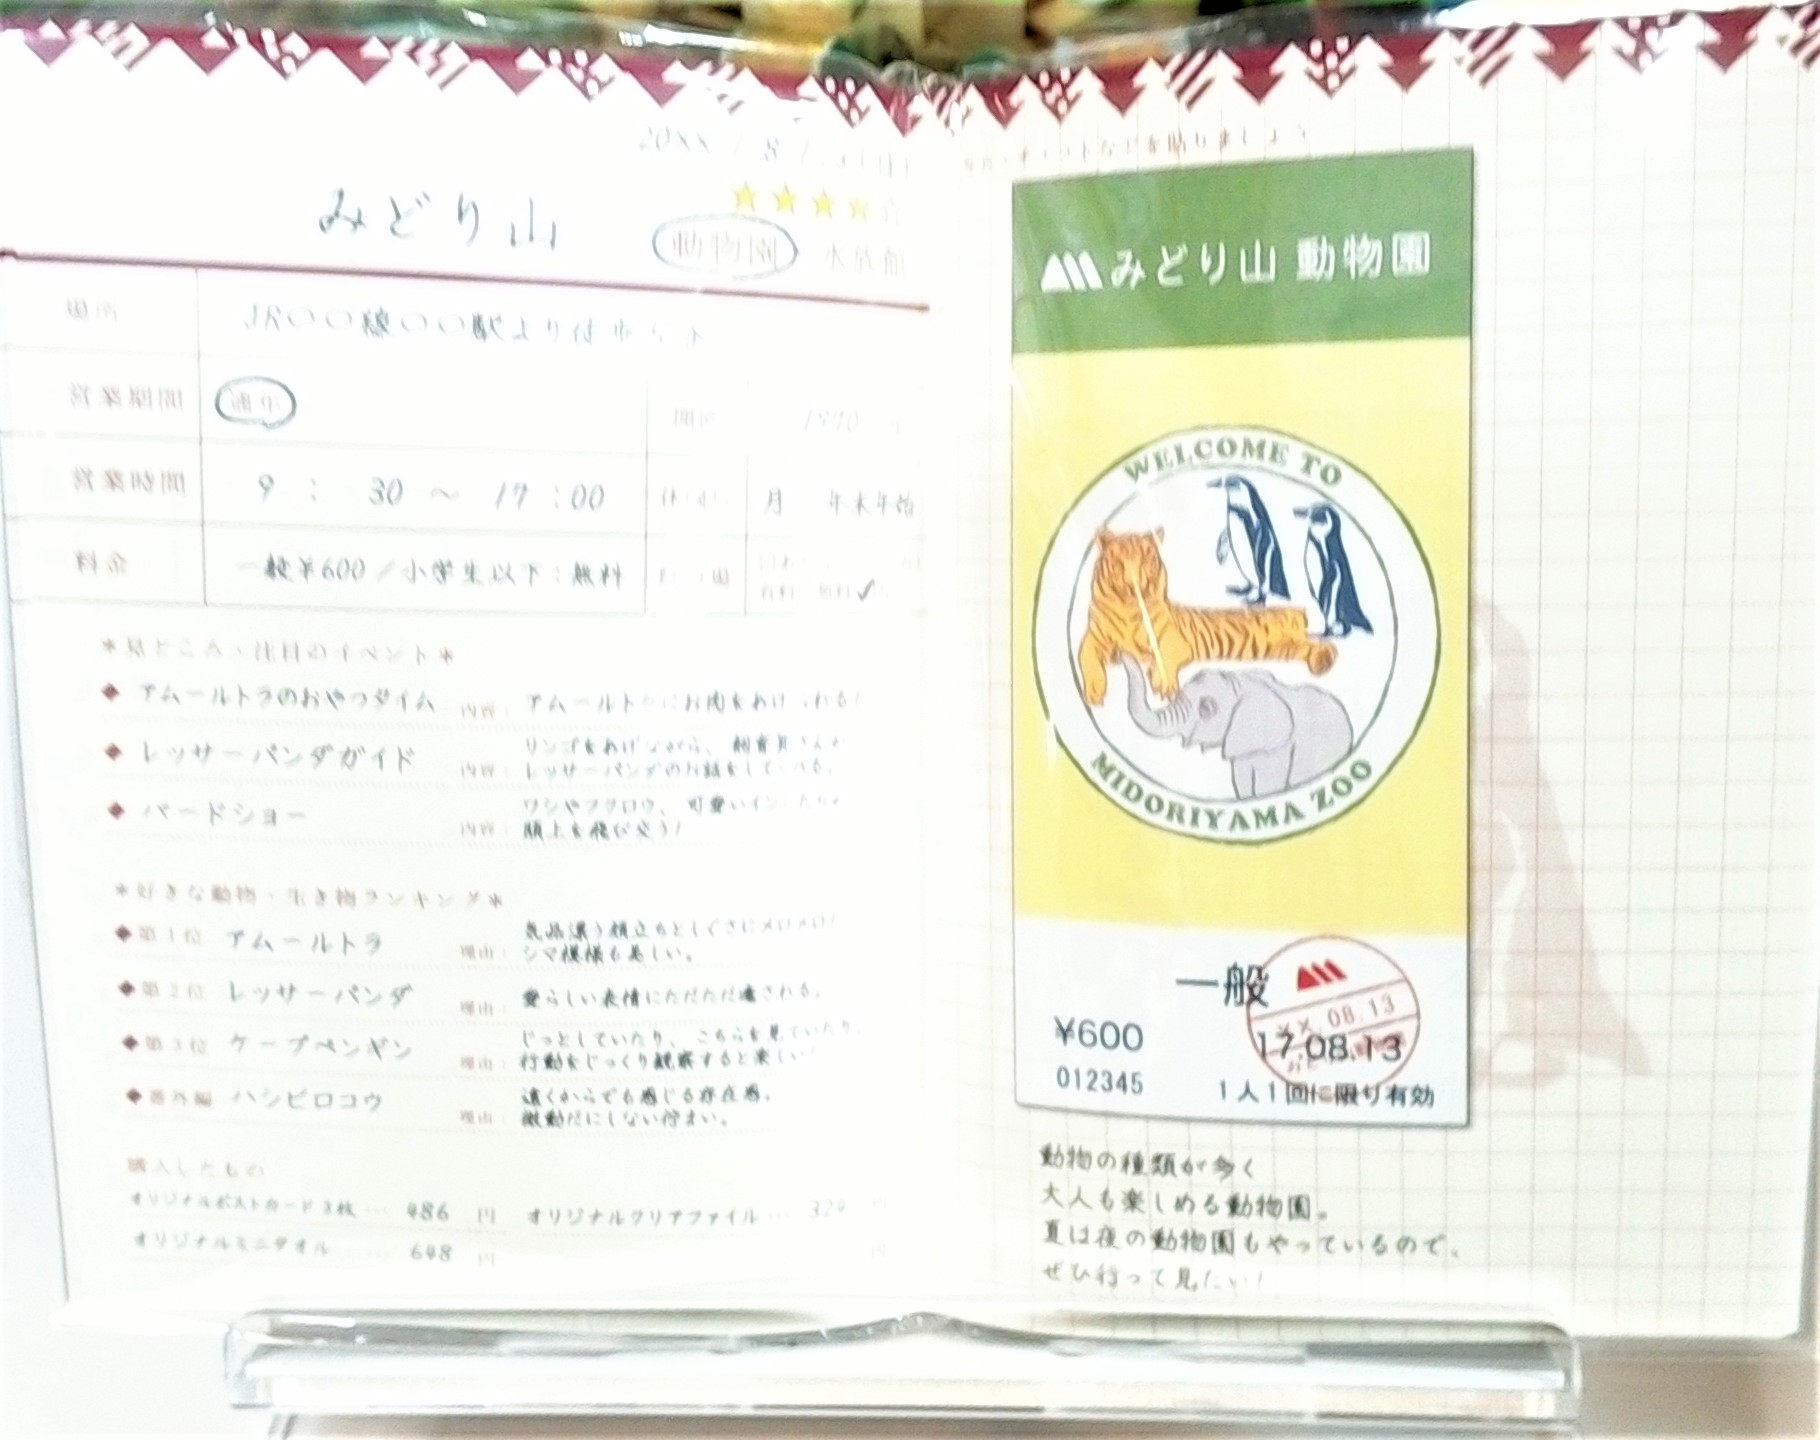 20XX / 8 /
みどり山
動物園 水族館
場所 JR〇〇線〇〇駅より徒歩5分
営業期間 通年
1970
営業時間 9 : 30 ～ 17 : 00
月 年末年始
料金 一般¥600／小学生以下：無料
有料 無料✓
＊見どころ・注目のイベント＊
◆ アムールトラのおやつタイム 内容： アムールトラにお肉をあげられる!
◆ レッサーパンダガイド 内容： リンゴをあげながら、飼育員さんが
レッサーパンダのお話をしてくれる。
◆ バードショー 内容： ワシやフクロウ、可愛いインコたちが
頭上を飛び交う!
＊好きな動物・生き物ランキング＊
◆第1位 アムールトラ 理由： 気品漂う顔立ちとしぐさにメロメロ!
シマ模様も美しい。
◆第2位 レッサーパンダ 理由： 愛らしい表情にただただ癒される。
◆第3位 ケープペンギン 理由： じっとしていたり、こちらを見ていたり
行動をじっくり観察すると楽しい
◆番外編 ハシビロコウ 理由： 遠くからでも感じる存在感。
微動だにしない佇まい。
購入したもの
オリジナルポストカード3枚 … 486 円 オリジナルクリアファイル … 324
オリジナルミニタオル … 648 円
チケットなどを貼りましょう
みどり山 動物園
WELCOME TO
MIDORIYAMA ZOO
一般
¥600
XX. 08. 13
17.08.13
012345
1人1回に限り有効
動物の種類が多く
大人も楽しめる動物園。
夏は夜の動物園もやっているので、
ぜひ行って見たい!